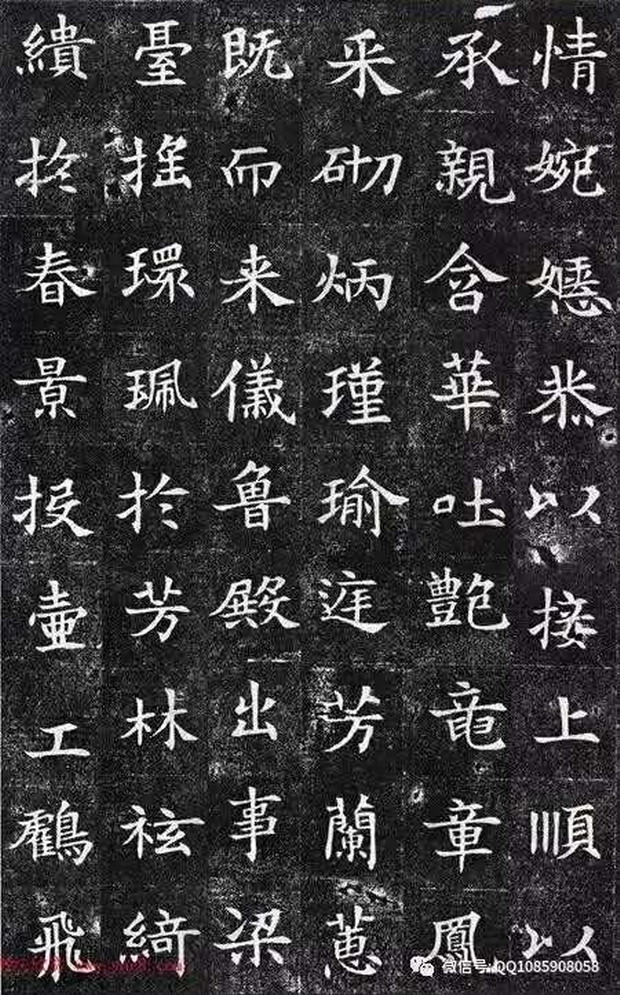 情婉嫕恭以接上順以
承親含華吐艷竜章鳳
采砌炳瑾瑜庭芳蘭蕙
既而来儀魯殿出事梁
臺搖環珮於芳林袨綺
繢於春景投壺工鸖飛
微信号:QQ1085908058